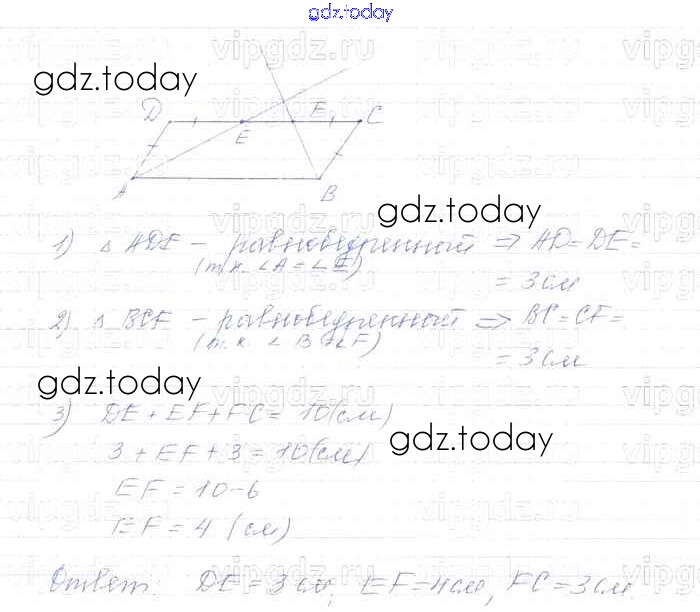 gdz.today
vipgdz.ru
gdz.today
D E F C
A B
gdz.today
1) △ ADE – равнобедренный ⇒ AD = DE =
(т.к. ∠A = ∠E)
= 3 см
2) △ BCF – равнобедренный ⇒ BC = CF =
(т.к. ∠B = ∠F)
= 3 см
gdz.today
3) DE + EF + FC = 10 (см)
gdz.today
3 + EF + 3 = 10 (см)
EF = 10 - 6
EF = 4 (см)
Ответ: DE = 3 см, EF = 4 см, FC = 3 см.